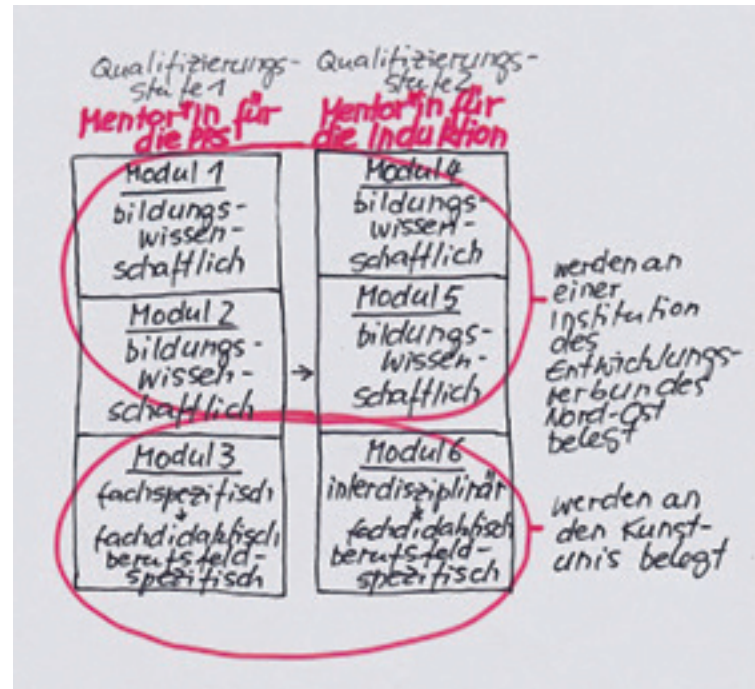 Qualifizierungs-
stufe 1
Mentor*in für
die PPS
Modul 1
bildungs-
wissen-
schaftlich
Modul 2
bildungs-
wissen-
schaftlich
Modul 3
fachspezifisch
+
fachdidaktisch
berufsfeld-
spezifisch
→
Qualifizierungs-
stufe 2
Mentor*in für
die Induktion
Modul 4
bildungs-
wissen-
schaftlich
Modul 5
bildungs-
wissen-
schaftlich
Modul 6
interdisziplinär
+
fachdidaktisch
berufsfeld-
spezifisch
werden an
einer
Institution
des
Entwicklungs-
verbundes
Nord-Ost
belegt
werden an
den Kunst-
unis belegt